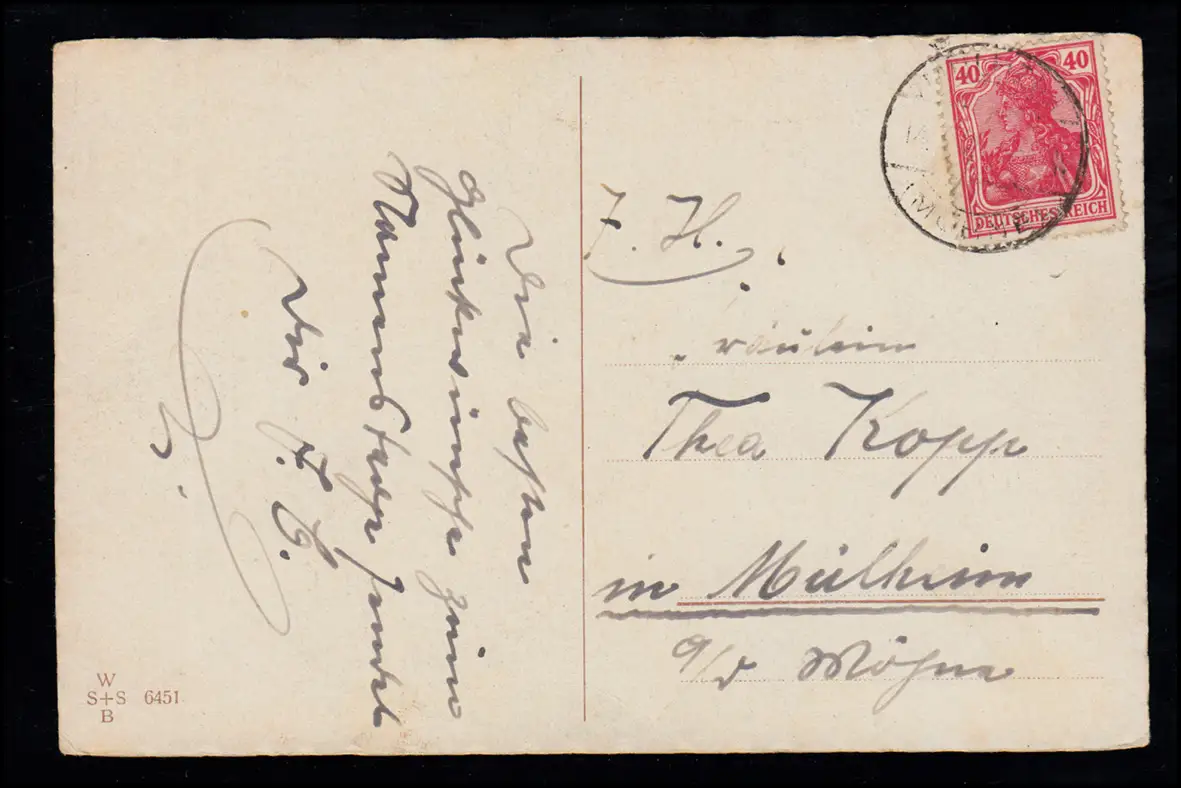 Die besten
Glückwünsche zum
Namenstage sendet
Dir F. C.
J. H.
Fräulein
Thea Kopp
in Mülheim
a/d Möhne
40 40
DEUTSCHES REICH
W
S+S 6451
B